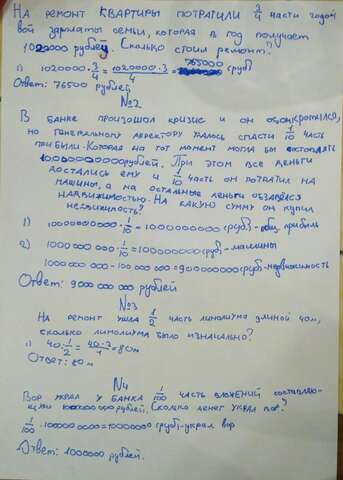 На ремонт квартиры потратили 3/4 части годо
вой зарплаты семьи, которая в год получает
1020000 рублей. Сколько стоил ремонт?
1) 1020000·3/4=1020000·3/4=765000 (руб)
Ответ: 76500 рублей
№2
В банке произошол кризис и он обонкротился,
но генеральному деректору удалось спасти 1/10 часть
прибыли. Которая на тот момент могла бы составлять
10000000000рублей. При этом все деньги
достались ему и 1/10 часть он потратил на
машины, а на остальные деньги обзавёлся
недвижимостью. На какую сумму он купил
недвижимость?
1) 10000000000·1/10=1000000000(руб)-общ. прибыль
2) 1000000000·1/10=100000000(руб)-машины
1000000 000-100 000 000=900000000(руб)-недвижимость
Ответ: 9000 000 000 рублей
№3
На ремонт ушла 1/2 часть линолиума длиной 40м,
сколько линолиума было изначально?
1) 40:1/2=40·2/1=80м
Ответ: 80м
№4
Вор украл у банка 1/100 часть вложений составляю-
щую рублей. Сколько денег украл вор?
1/100·100000000=1000000 (руб)-украл вор
Ответ: 1000000 рублей.